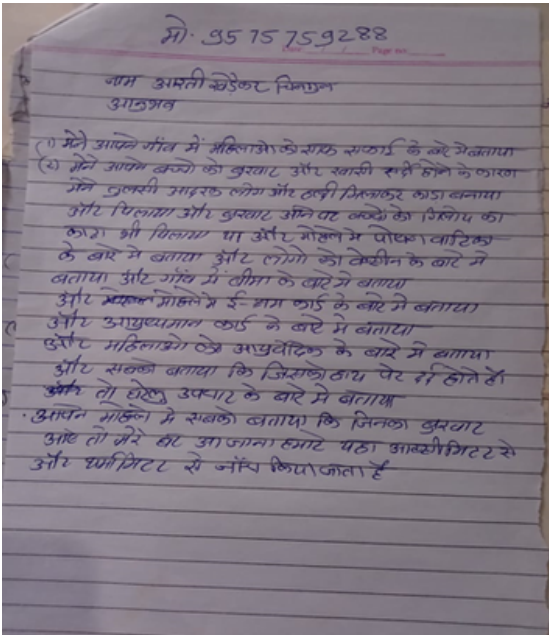 मो. 9575759288
Page no.
नाम आरती खेड़कर चिनगुन
अनुभव
(1) मैने आपने गाँव में महिलाओ को साफ सफाई के बारे मे बताया
(2) मैने आपने बच्चो को बुखार और खासी सर्दी होने के कारण
मैंने तुलसी आदरक लोंग और हल्दी मिलाकर काडा बनाया
और पिलाया और बुखार आने पर बच्चो को गिलोय का
काडा भी पिलाया था और मोहल्ले मे पोषण वाटिका
के बारे मे बताया और लोगो को वेक्सीन के बारे मे
बताया और गाँव में बीमा के बारे मे बताया
और मोहल्ले मे ई-श्रम कार्ड के बारे मे बताया
और आयुष्यमान कार्ड के बारे मे बताया
और महिलाओ को आयुर्वेदिक के बारे मे बताया
और सबको बताया कि जिसका हाथ पेर दर्द होते है।
तो घरेलु उपचार के बारे मे बताया
. आपने मोहल्ले मे सबको बताया कि जिनका बुखार
आए तो मेरे घर आ जाना हमारे यहा आक्सीमिटर से
और थर्मामिटर से जाँच किया जाता है